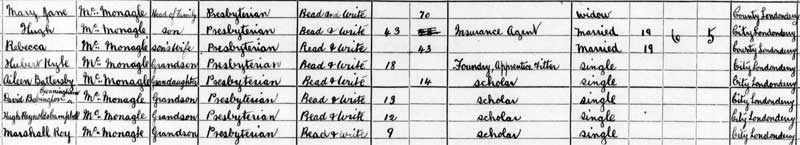 Mary Jane Mc Monagle Head of Family Presbyterian Read and Write 70 widow County Londonderry
Hugh Mc Monagle son Presbyterian Read & Write 43 Insurance Agent Married 19 6 5 City Londonderry
Rebecca Mc Monagle son's Wife Presbyterian Read & Write 43 Married 19 County Londonderry
Hubert Kyle Mc Monagle Grandson Presbyterian Read & Write 18 Foundry, Apprentice Fitter single City Londonderry
Aileen Battersby Mc Monagle Grandaughter Presbyterian Read & Write 14 scholar single City Londonderry
David Babington Cunningham Mc Monagle Grandson Presbyterian Read & Write 13 scholar single City Londonderry
Hugh Reynolds Campbell Mc Monagle Grandson Presbyterian Read & Write 12 scholar single City Londonderry
Marshall Roy Mc Monagle Grandson Presbyterian Read & Write 9 scholar single City Londonderry